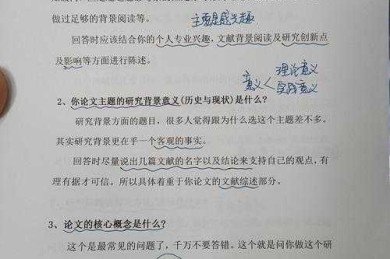 做过足够的背景阅读等。 主要是感兴趣
回答时应该结合你的个人专业兴趣,文献背景阅读及研究创新点
及影响等方面进行陈述。
意义 理论意义
实践意义
2、你论文主题的研究背景意义(历史与现状)是什么?
研究背景方面的题目,很多人觉得跟为什么选这个主题差不多。
其实研究背景更在乎一个客观的事实。
回答时尽量说出几篇文献的名字以及结论来支持自己的观点,有
理有据才可信,所以具体着重于你论文的文献综述部分。
3、论文的核心概念是什么?
这个是最常见的问题了,千万不要答错,这个就是问你做这个研